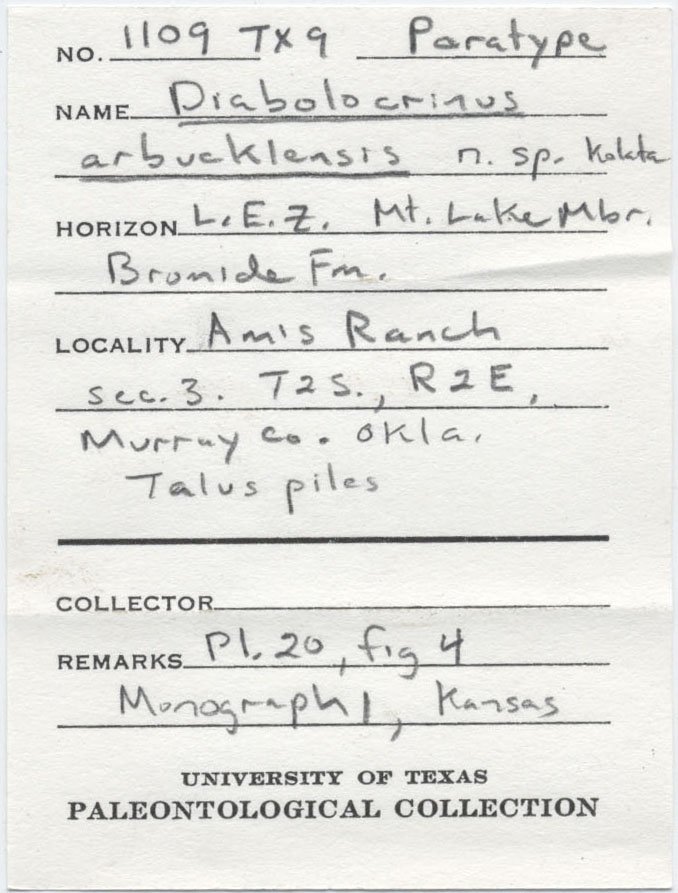 NO. 1109 TX9 Paratype
NAME Diabolocrinus
arbucklensis n. sp. Kolata
HORIZON L.E.Z. Mt. Lake Mbr.
Bromide Fm.
LOCALITY Amis Ranch
sec. 3. T2S., R2E,
Murray Co. Okla.
Talus piles
COLLECTOR
REMARKS Pl. 20, fig 4
Monograph 1, Kansas
UNIVERSITY OF TEXAS
PALEONTOLOGICAL COLLECTION